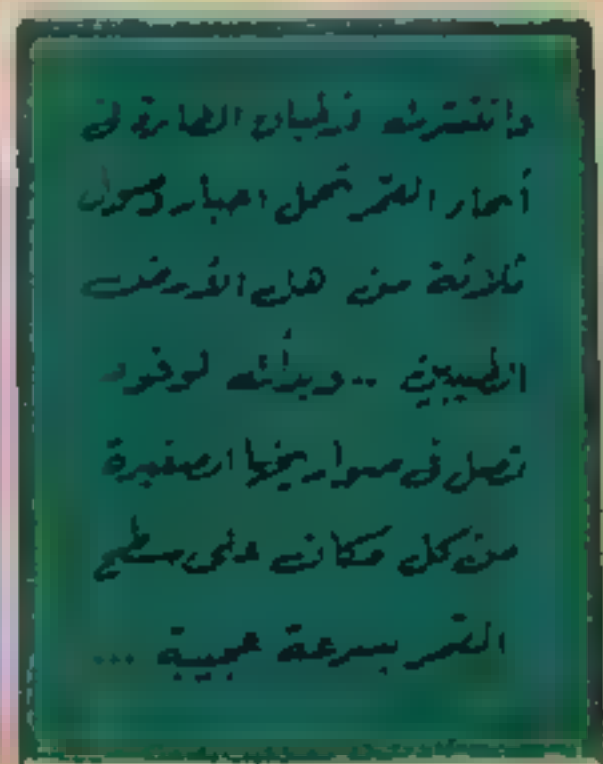 وانتشرت الطائرة في
القمر تحمل اخبار وصول
ثلاثة من هل الأرض
الطيبين .. وبدأت لوفود
تصل في صواريخها الصغيرة
من كل مكان على سطح
القمر بسرعة عجيبة ...